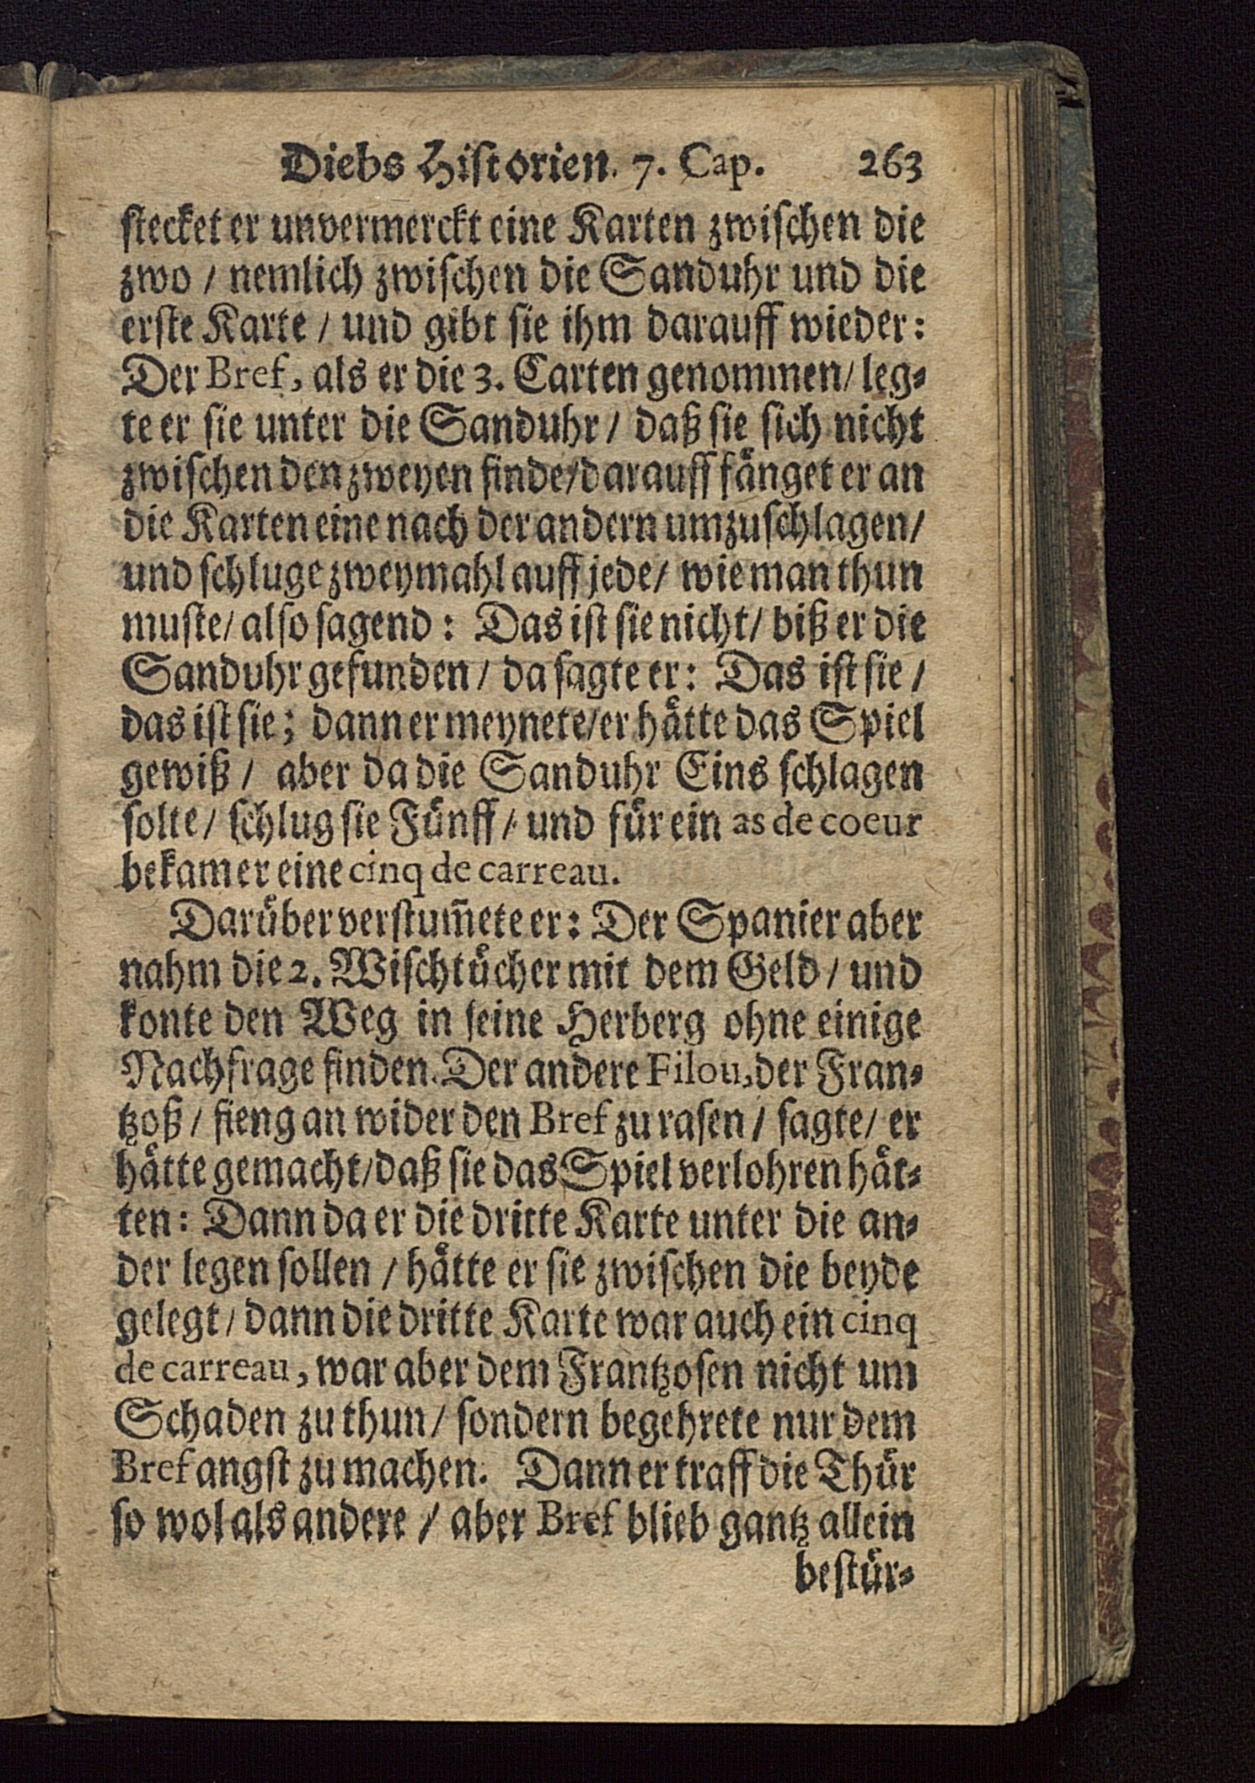 Diebs Historien. 7. Cap. 263
stecket er unvermerckt eine Karten zwischen die
zwo / nemlich zwischen die Sanduhr und die
erste Karte / und gibt sie ihm darauff wieder:
Der Bref, als er die 3. Carten genommen / leg-
te er sie unter die Sanduhr / daß sie sich nicht
zwischen den zweyen finde / darauff fänget er an
die Karten eine nach der andern umzuschlagen /
und schluge zweymahl auff jede / wie man thun
muste / also sagend: Das ist sie nicht / biß er die
Sanduhr gefunden / da sagte er: Das ist sie /
das ist sie; dann er meynete / er hätte das Spiel
gewiß / aber da die Sanduhr Eins schlagen
solte / schlug sie Fünff / und für ein as de coeur
bekam er eine cinq de carreau.
Darüber verstum̃ete er: Der Spanier aber
nahm die 2. Wischtücher mit dem Geld / und
konte den Weg in seine Herberg ohne einige
Nachfrage finden. Der andere Filou, der Fran-
tzoß / fieng an wider den Bref zu rasen / sagte / er
hätte gemacht / daß sie das Spiel verlohren hät-
ten: Dann da er die dritte Karte unter die an-
der legen sollen / hätte er sie zwischen die beyde
gelegt / dann die dritte Karte war auch ein cinq
de carreau, war aber dem Frantzosen nicht um
Schaden zu thun / sondern begehrete nur dem
Bref angst zu machen. Dann er traff die Thür
so wol als andere / aber Bref blieb gantz allein
bestür-